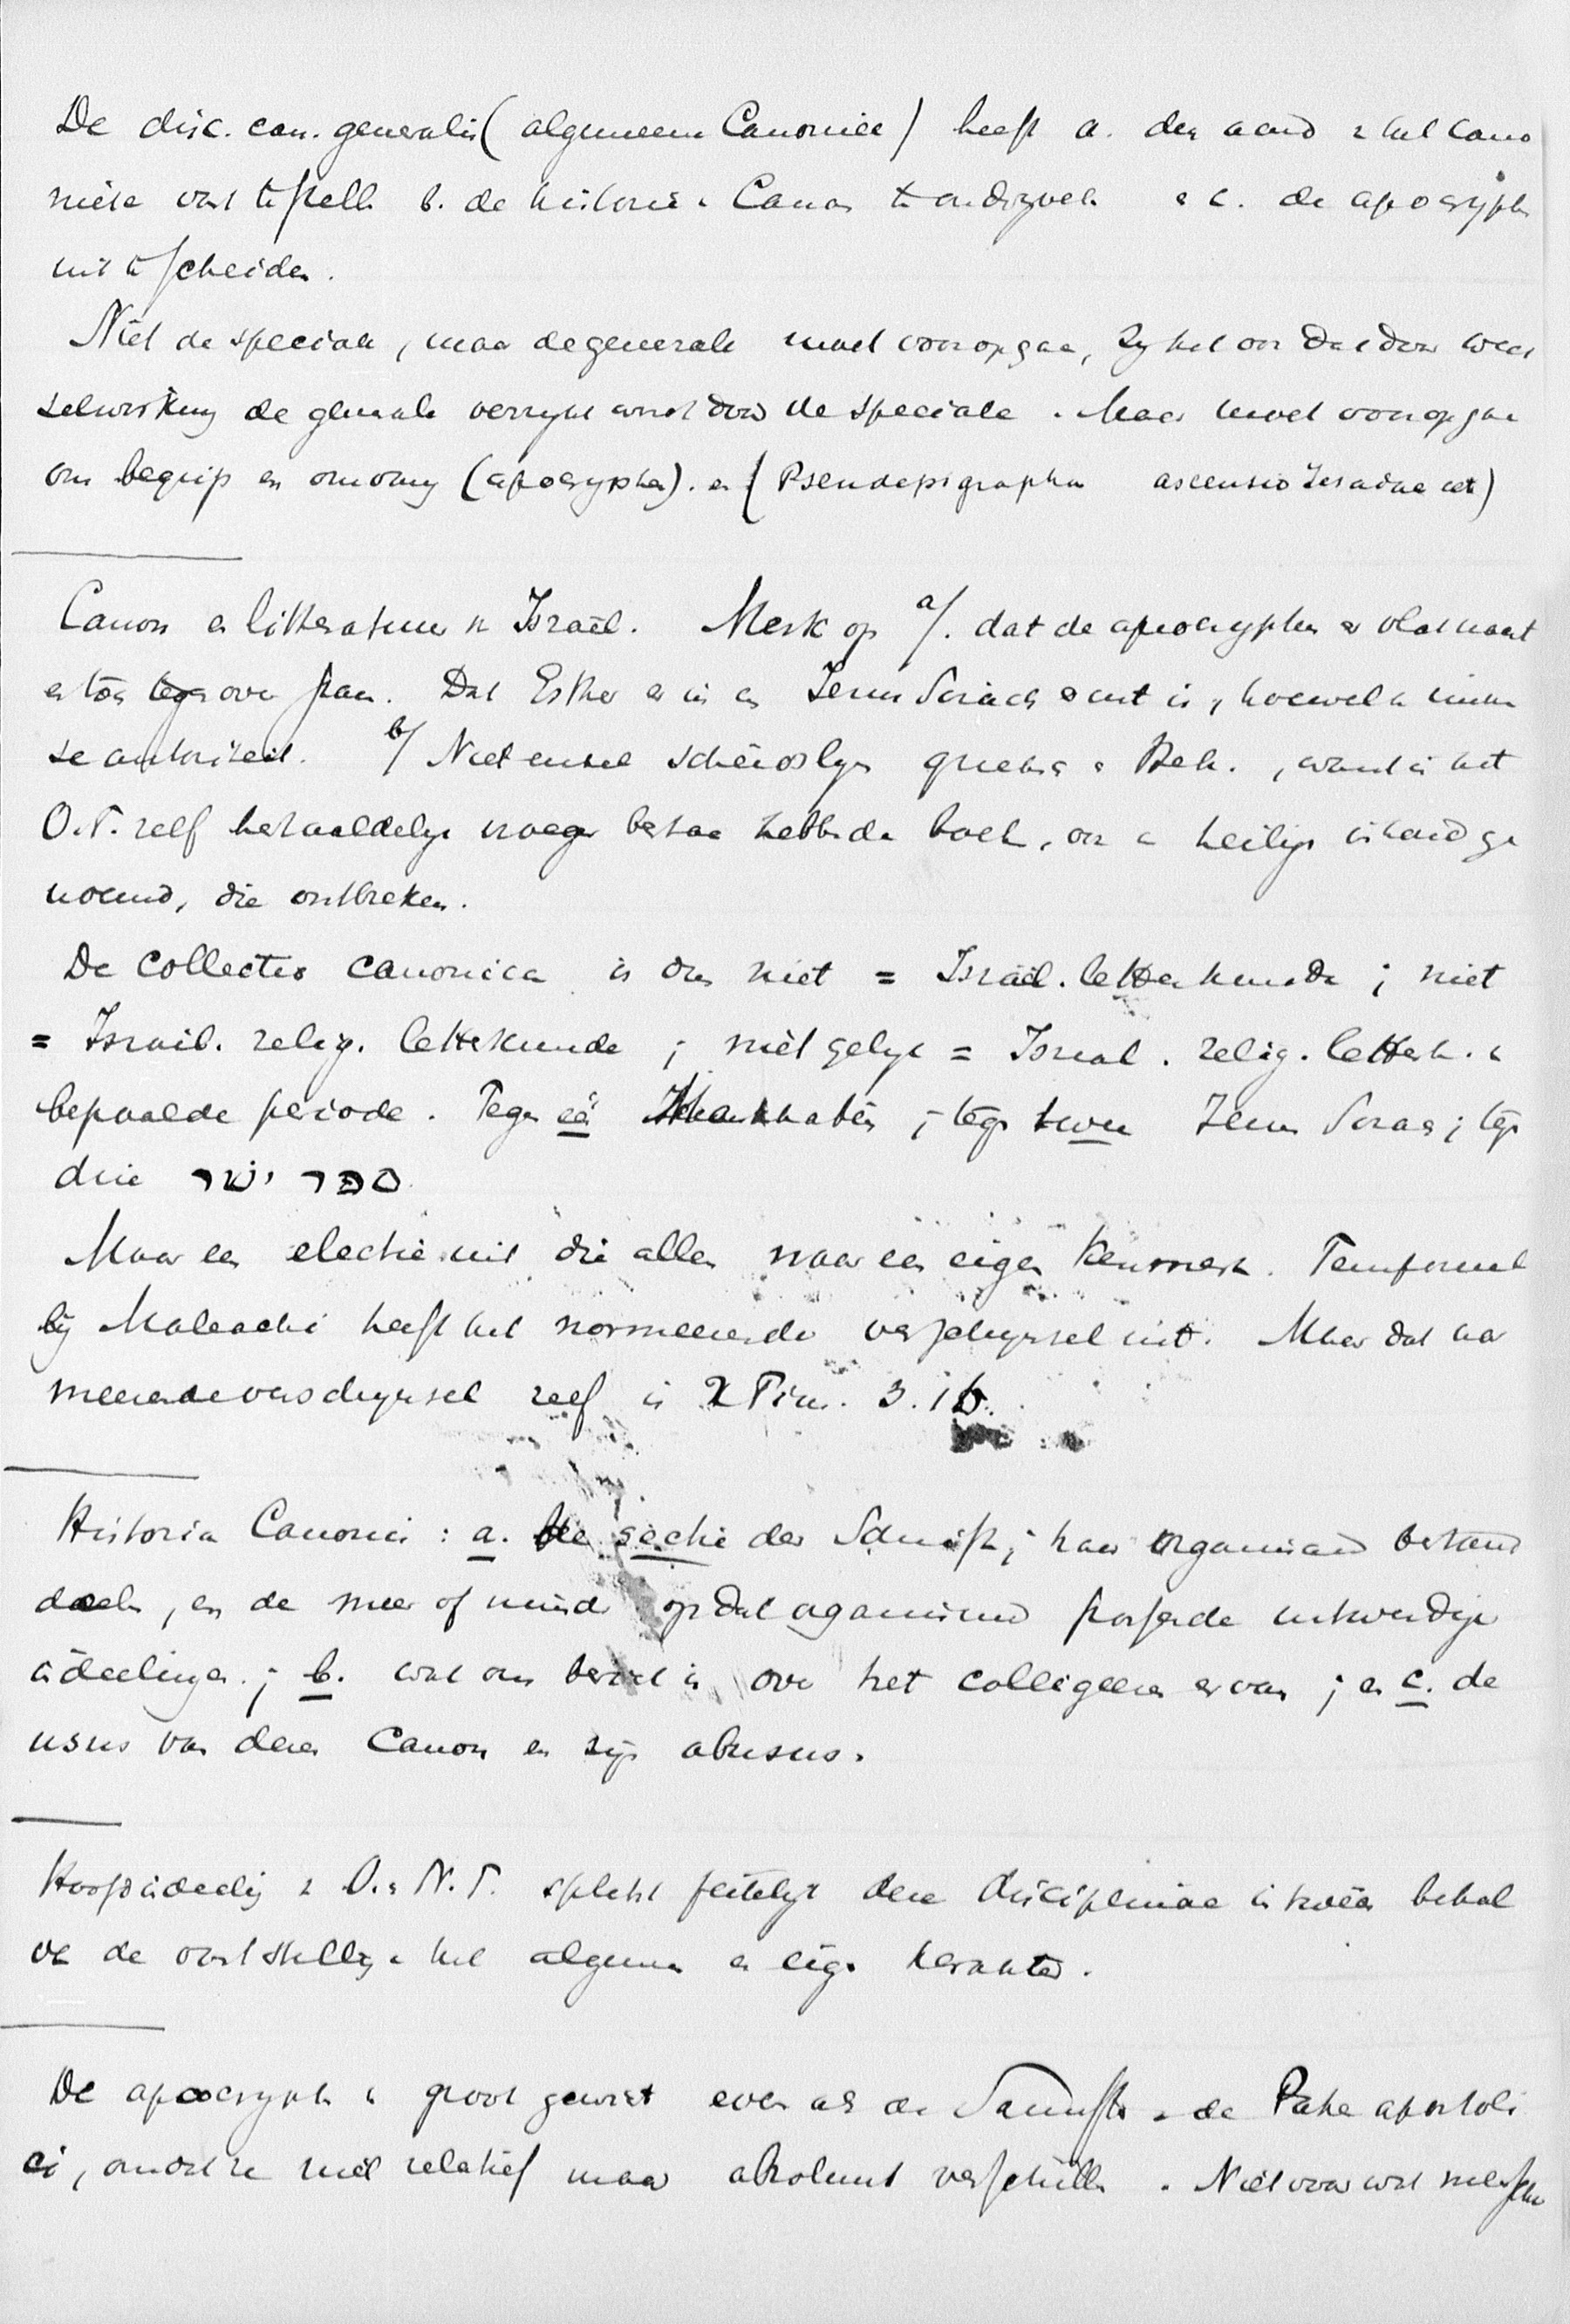 De disc. can. generalis (algemeene Canoniek) heeft a. den aard v. het cano
nieke vast te stellen b. de historie v. Canon te onderzoeken en c. de apocryphen
uit te scheiden.
Niet de speciale, maar de generale moet voorop gaan, zij het ook dat door wis
selwerking de generale verrijkt wordt door de speciale. Maar moet voorop gaan
om begrip en omvang (apocryphen). en (Pseudepigrapha ascensio Iesaiae cet)
Canon en litteratuur v. Israël. Merk op a/. dat de apocryphen er vlak naast
en toch tegenover staan. Dat Esther er in en Jesus Sirach eruit is, hoewel
se autoriteit. b/ Niet enkel scheiding
O.T. zelf herhaaldelijk vroeger bestaan hebbende boeken, ook v. heilige inhoud ge
noemd, die ontbreken.
De Collectio canonica is dus niet = Israël. letterkunde ; niet
= Israël. relig. letterkunde ; niet gelijk = Israel. relig. letterk. v.
bepaalde periode. Tegen één Makkabeën ; tegen twee Jesus Sirach ; tegen
drie ספר ישר
Maar een electie uit die allen naar een eigen kenmerk. Temporeel
bij Maleachi heeft het normeerende verschijnsel uit. Maar dat nor
meerende verschijnsel zelf is 2 Tim. 3.16.
Historia Canonici : a. de sectie der Schrift ; haar organisch bestand
deelen, en de meer of minder op dat organisme passende uitwendige
indeelingen. ; b. wat ons bericht is over het colligeeren ervan ; en c. de
usus van dezen Canon en zijn abusus.
Hoofdindeeling v. O. en N.T. splitst feitelijk deze disciplinae in tweeën behal
ve de vaststelling v. het algemeen en eigen karakter.
De apocryphen v. groot gewicht even als de de Patres apostoli
ci, omdat ze niet relatief maar absoluut verschillen. Niet voor wat menschen